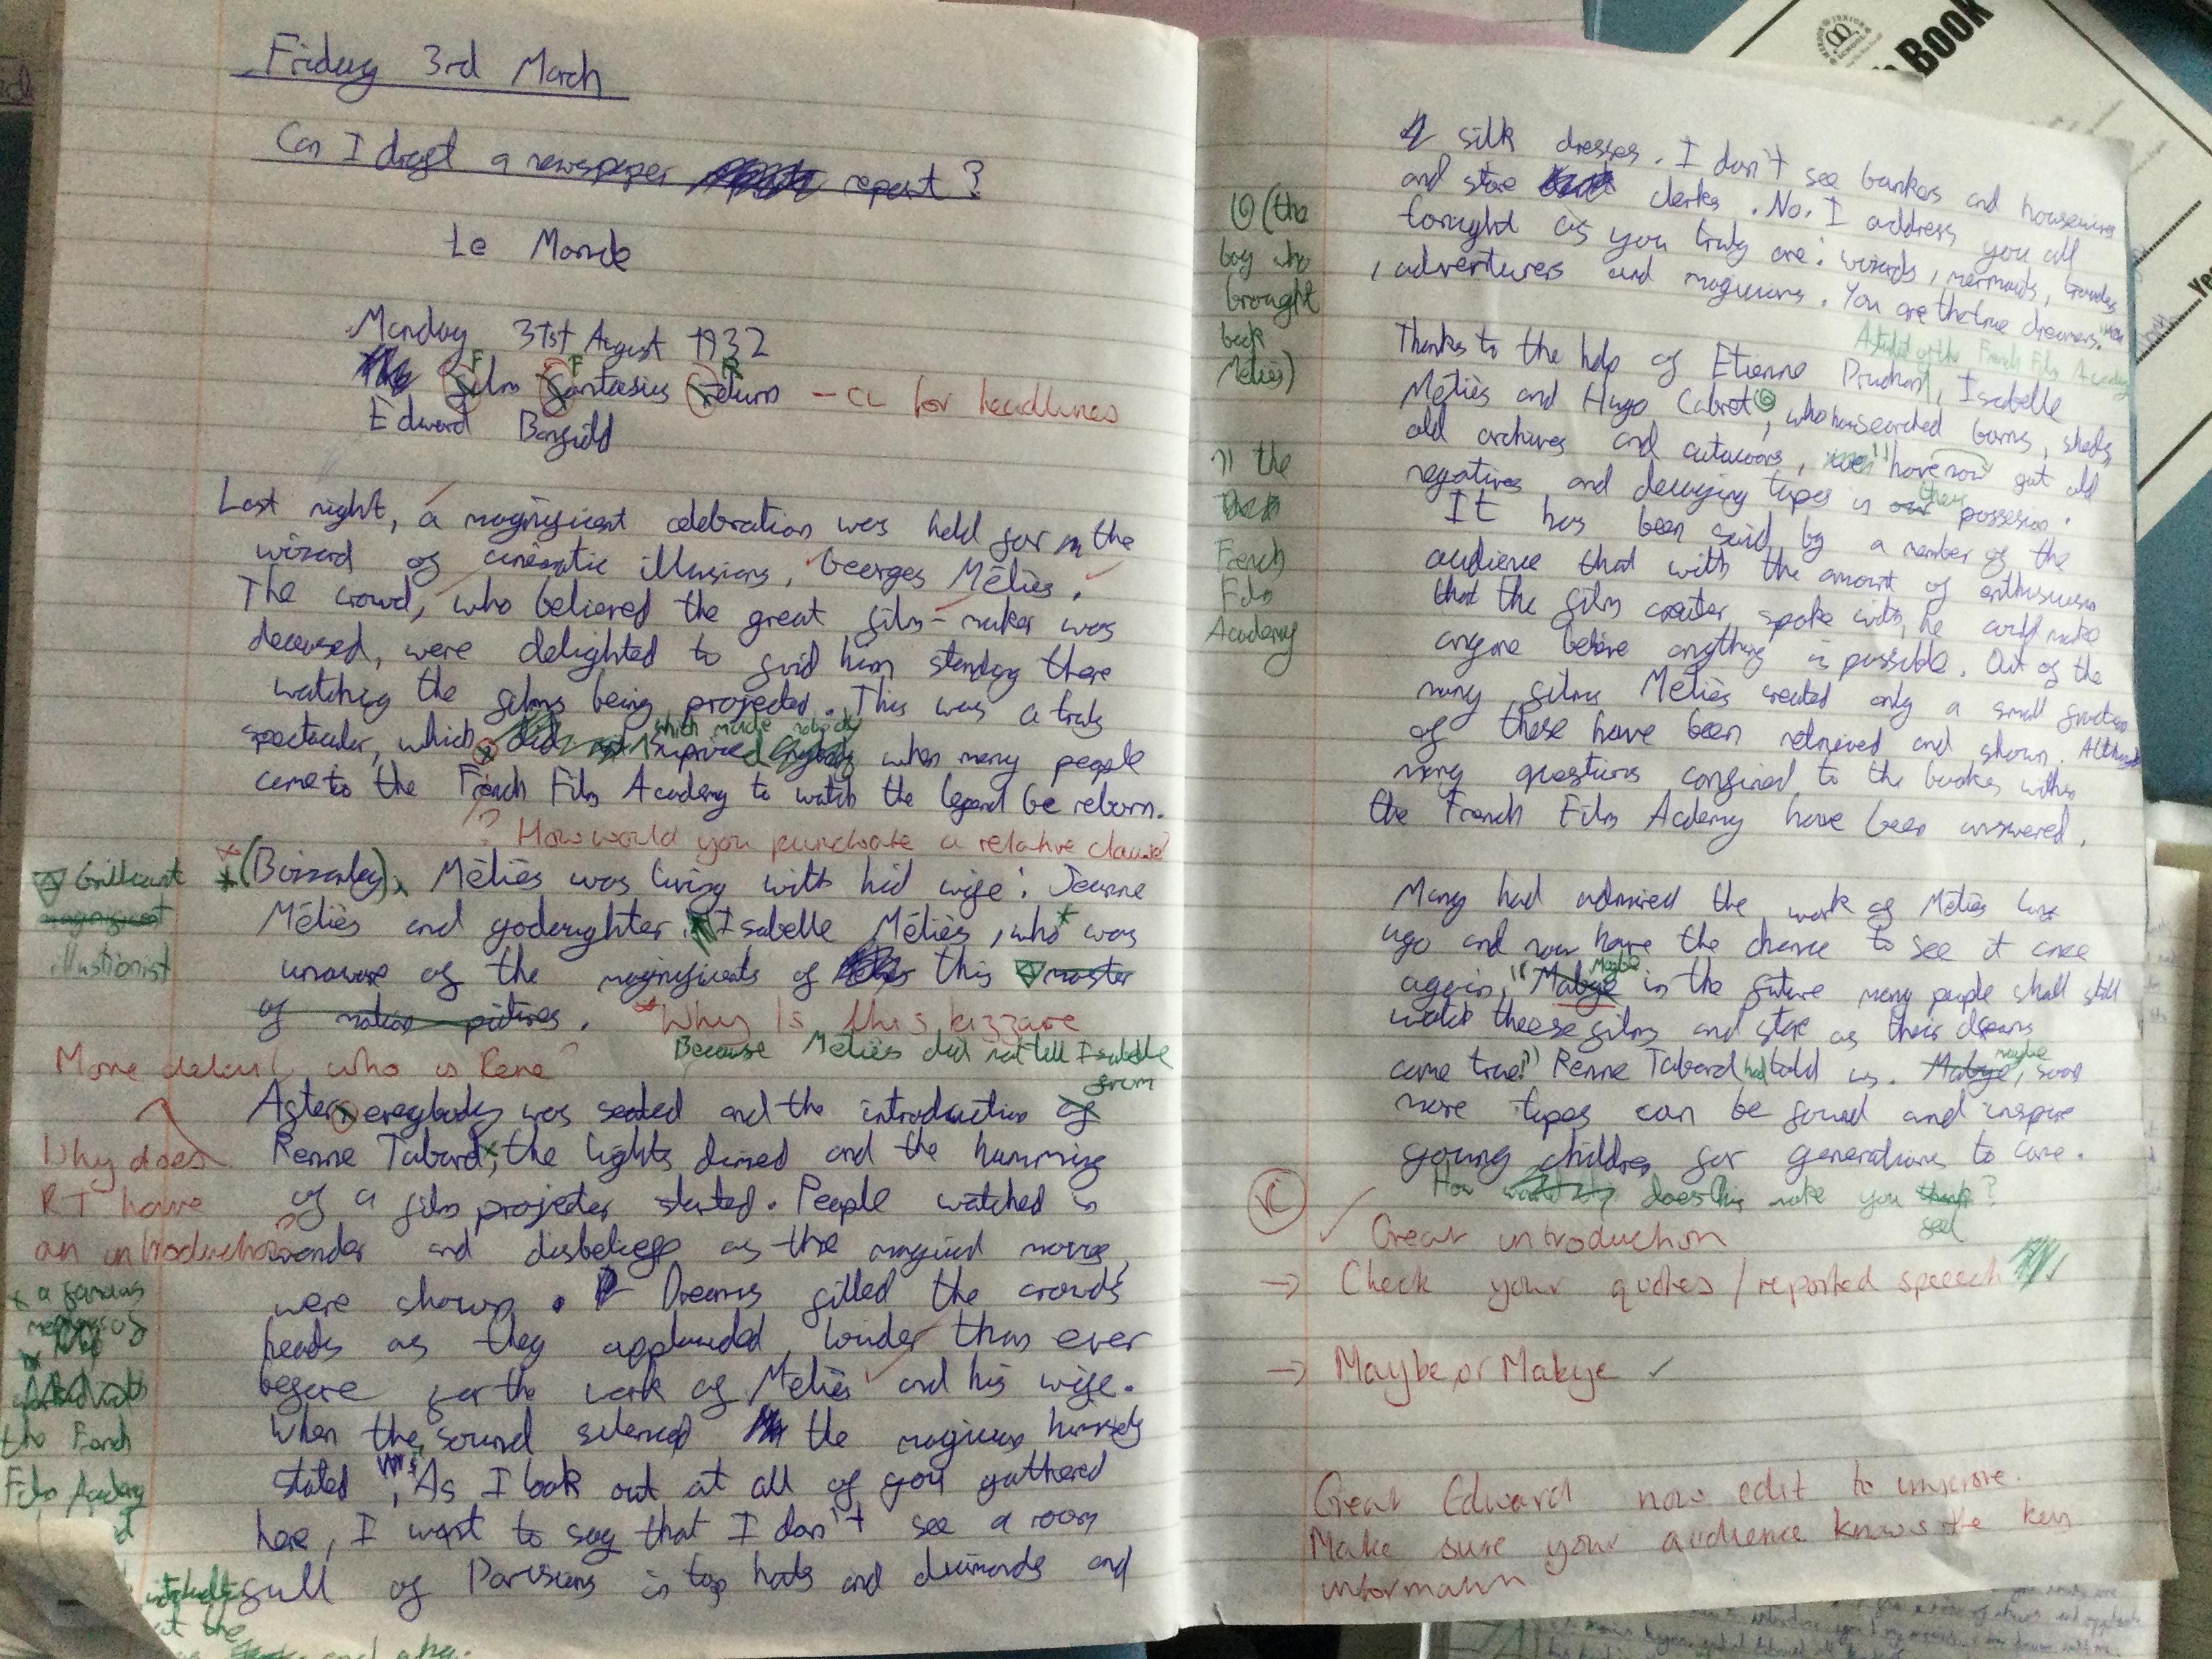 Friday 3rd March
Can I draft a newspaper report?
Le Monde
Monday 31st August 1932
Film Fantasius Return - CL for headlines
Edward
Last night, a magnificent celebration was held for the
wizard of cinematic illusions, Georges Méliès.
The crowd, who believed the great film-maker was
deceased, were delighted to find him standing there
watching the films being projected. This was a truly
spectacular, which
which made nobody
suprised when many people
came to the French Film Academy to watch the legend be reborn.
? How would you punctuate a relative clause?
(Bizzarley), Méliès was living with hid wife: Jeanne
Méliès and godaughter Isabelle Méliès, who was
unaware of the of this master
of motion pictures.
brilliant
magnificent
illustionist
Why is this bizzare
Because Méliès did not tell Isabelle
More detail, who is Rene?
After everybody was seated and the introduction of
from
Renne Tabard, the lights dimed and the humming
of a film projecter started. People watched in
wonder and disbelief as the magical movies
were shown. Dreams filled the crowds
heads as they applauded louder than ever
before for the work of Méliès and his wife.
When the sound silenced the magician himself
stated, "As I look out at all of you gathered
here, I want to say that I don't see a room
full of Parisians in top hats and diamonds and
Why does
RT have
an introduction?
a famous
the French
Film Academy
at the
silk dresses. I don't see bankers and housewives
and store clerks. No. I address you all
tonight as you truly are: wizards, mermaids, travelers
, adventurers and magicians. You are the true dreamers."
(the
boy who
brought
back
Méliès)
Thanks to the help of Etienne Pruchon, Isabelle
of the French Film Academy
Méliès and Hugo Cabret, who have searched barns, sheds,
old archives and catacoms, have now got old
negatives and decaying tapes in our possesion.
their
the
French
Film
Academy
It has been said by a number of the
audience that with the amount of enthusiasm
that the film creater spoke with, he could make
anyone believe anything is possible. Out of the
many films Méliès created only a small fraction
of those have been retrieved and shown. Although
many questions confined to the books within
the French Film Acdemy have been answered.
Many had admired the work of Méliès long
ago and now have the chance to see it once
again, "Mabye in the future many people shall still
Maybe
watch theese films and stare as their dreams
come true!" Renne Tabard had told us. Mabye, soon
maybe
more tapes can be found and inspire
young children for generations to come.
How does this make you think?
feel
VC
Great introduction
→ Check your quotes / reported speech
→ Maybe or Mabye ✓
Great Edward now edit to improve.
Make sure your audience knows the key
information
Book